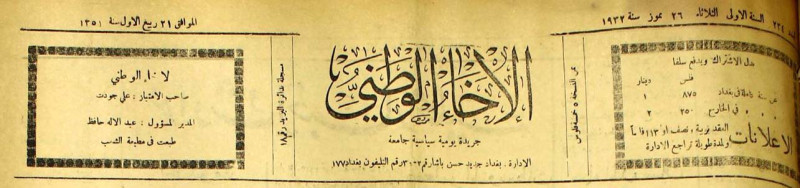 السنة الاولى الثلاثاء ٢٦ تموز سنة ١٩٣٢
الموافق ٢١ ربيع الاول سنة ١٣٥١
بدل الاشتراك ويدفع سلفا
فلس دينار
عن سنة كاملة في بغداد ٨٧٥ ١
في الخارج ٢٥٠ ٢
الاعلانات
ولمدة طويلة تراجع الادارة
ثمن النسخة ٥ خمسة فلوس
الاخاء الوطني
جريدة يومية سياسية جامعة
الادارة. بغداد جديد حسن باشا رقم ٢-٣٠ رقم التليفون بغداد ١٧٧
مسجلة بدائرة البريد رقم ١٨
الاخاء الوطني
صاحب الامتياز: علي جودت
المدير المسؤول: عبد الاله حافظ
طبعت في مطبعة الشعب